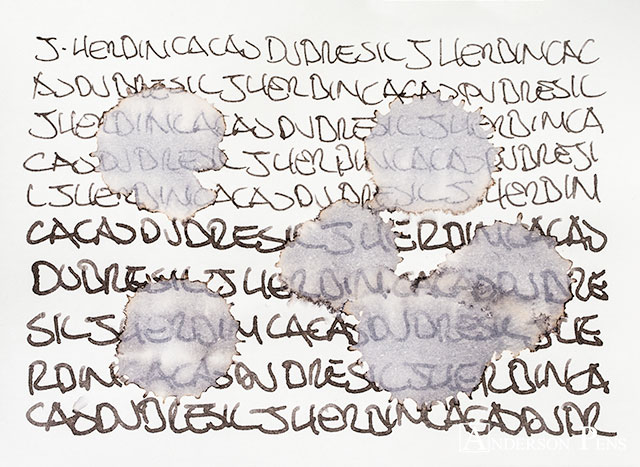 J. HERBIN CACAO DU BRESIL J HERBIN CAC
AO DU BRESIL J HERBIN CACAO DU BRESIL
J HERBIN CACAO DU BRESIL J HERBIN CA
CAO DU BRESIL J HERBIN CACAO DU BRESI
L J HERBIN CACAO DU BRESIL J HERBIN
CACAO DU BRESIL J HERBIN CACAO
DU BRESIL J HERBIN CACAO DU BRE
SIL J HERBIN CACAO DU BRESIL J HE
RBIN CACAO DU BRESIL J HERBIN CA
CAO DU BRESIL J HERBIN CACAO DU BR
ANDERSON PENS